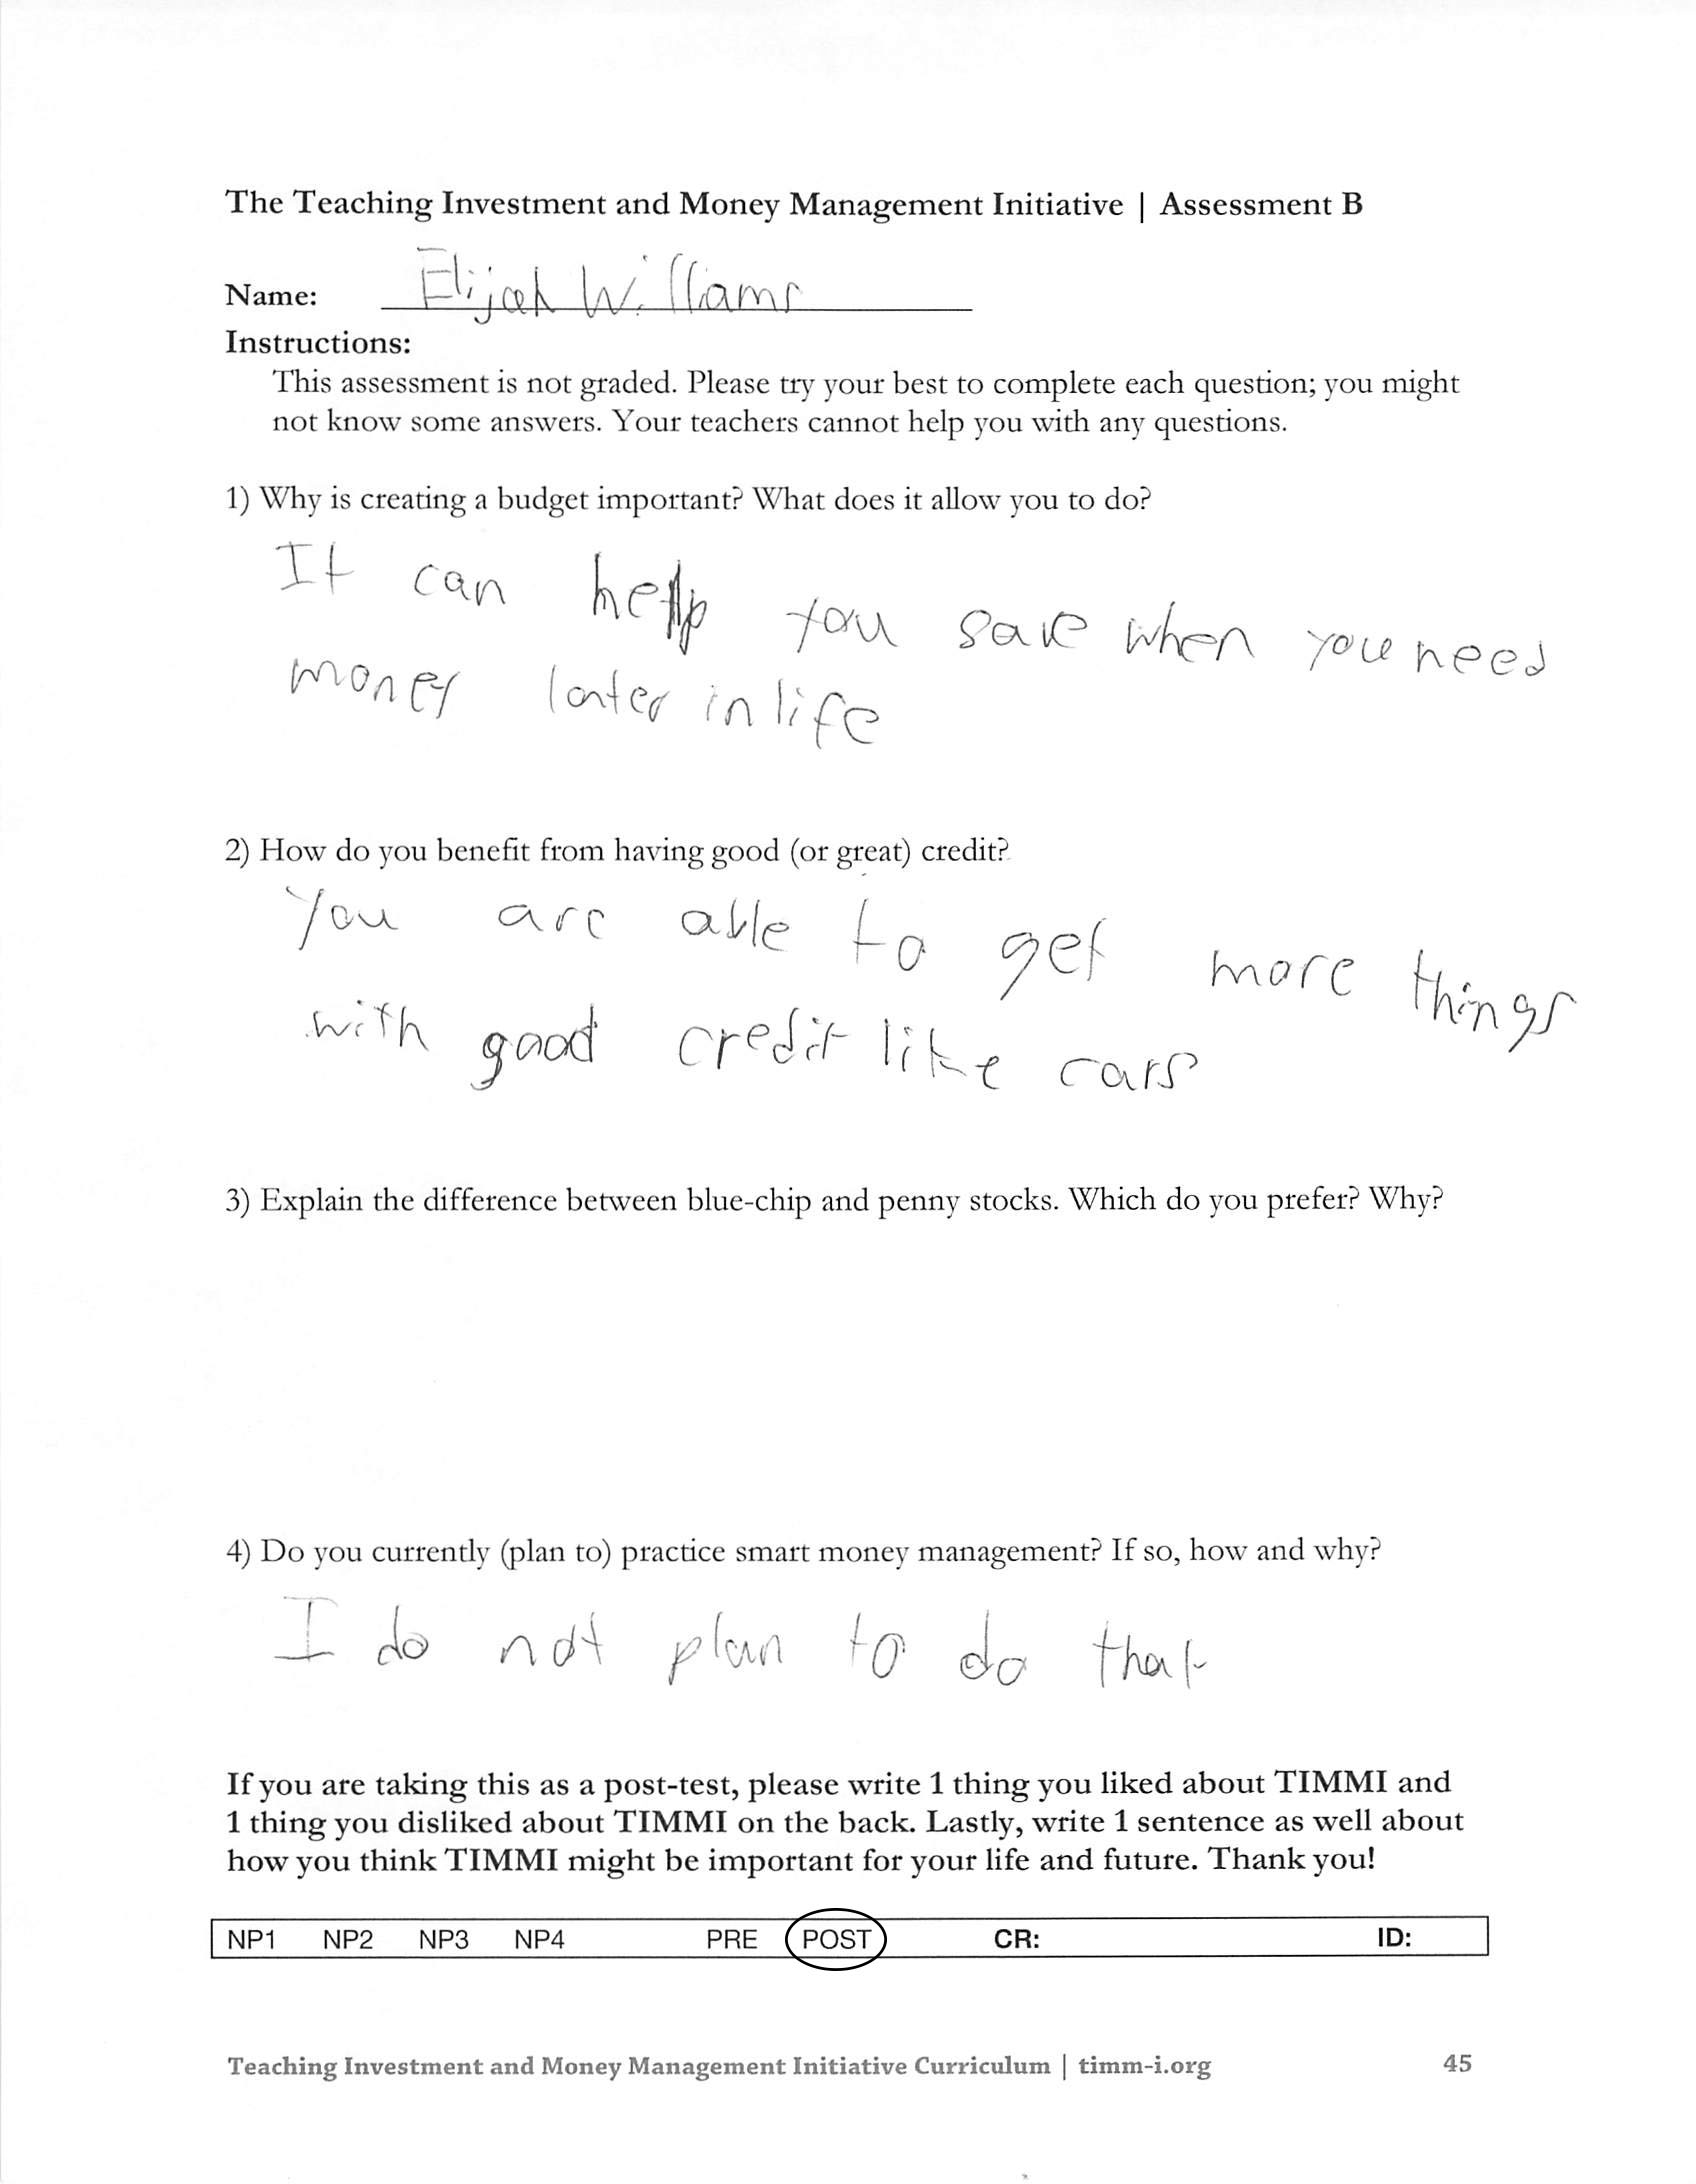 The Teaching Investment and Money Management Initiative | Assessment B
Name: Elijah Williams
Instructions:
This assessment is not graded. Please try your best to complete each question; you might
not know some answers. Your teachers cannot help you with any questions.
1) Why is creating a budget important? What does it allow you to do?
It can help you save when you need
money later in life
2) How do you benefit from having good (or great) credit?
You are able to get more things
with good credit like cars
3) Explain the difference between blue-chip and penny stocks. Which do you prefer? Why?
4) Do you currently (plan to) practice smart money management? If so, how and why?
I do not plan to do that
If you are taking this as a post-test, please write 1 thing you liked about TIMMI and
1 thing you disliked about TIMMI on the back. Lastly, write 1 sentence as well about
how you think TIMMI might be important for your life and future. Thank you!
NP1 NP2 NP3 NP4 PRE POST CR: ID:
Teaching Investment and Money Management Initiative Curriculum | timm-i.org 45